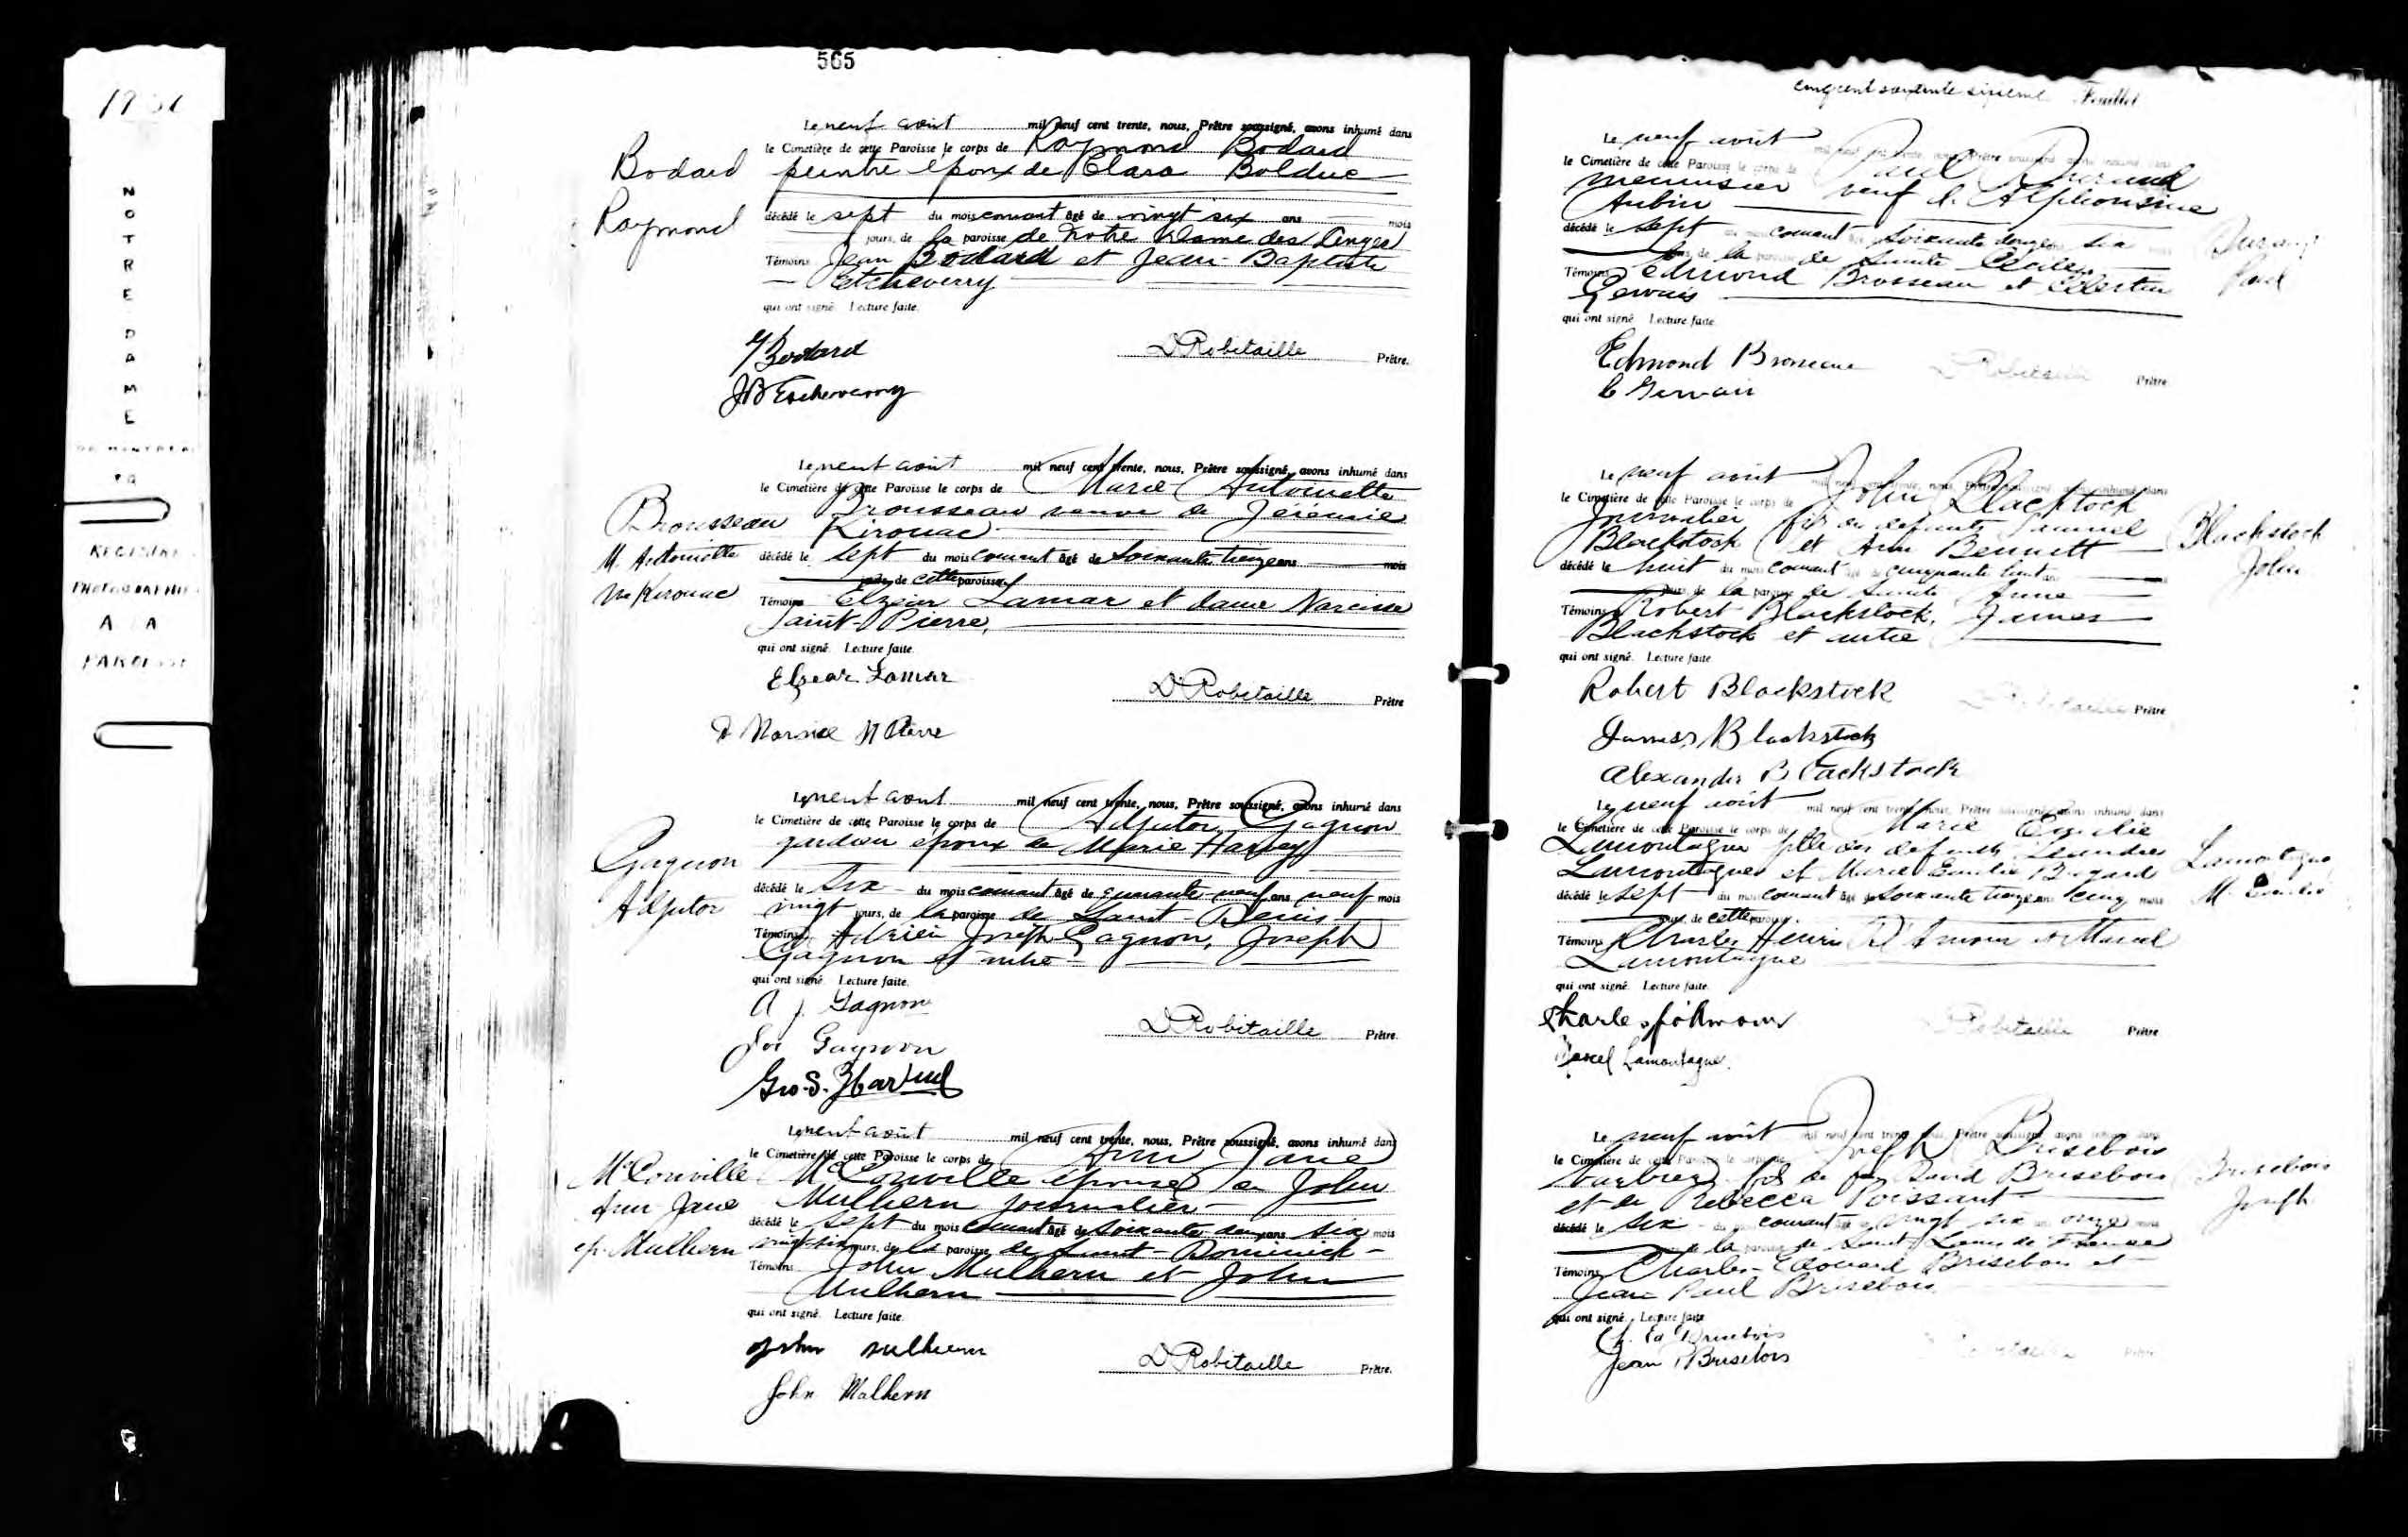 NOTRE DAME
DE MONTREAL
REGISTRE
PHOTOGRAPHIE
A LA
PAROISSE
565
Le neuf août mil neuf cent trente, nous, Prêtre soussigné, avons inhumé dans
le Cimetière de cette Paroisse le corps de Raymond Bodard
peintre époux de Clara Bolduc
décédé le sept du mois courant âgé de vingt six ans mois
jours, de la paroisse de Notre Dame des Anges
Témoins Jean Bodard et Jean-Baptiste
Etcheverry
qui ont signé. Lecture faite.
Bodard
Raymond
J Bodard
D Robitaille Prêtre.
JB Etcheverry
Le neuf août mil neuf cent trente, nous, Prêtre soussigné, avons inhumé dans
le Cimetière de cette Paroisse le corps de Marie Antoinette
Brousseau veuve de Jérémie
Kirouac
décédé le sept du mois courant âgé de soixante treize ans mois
jours, de cette paroisse.
Témoins Elzéar Lamar et dame Narcisse
Saint-Pierre,
qui ont signé. Lecture faite.
Brousseau
M. Antoinette
ve Kirouac
Elzear Lamar
D Robitaille Prêtre
Narcisse St Pierre
Le neuf aout mil neuf cent trente, nous, Prêtre soussigné, avons inhumé dans
le Cimetière de cette Paroisse le corps de Adjutor Gagnon
gardien époux de Marie Harvey
décédé le six du mois courant âgé de quarante-neuf ans neuf mois
vingt jours, de la paroisse de Saint-Denis
Témoins Adrien Joseph Gagnon, Joseph
Gagnon et autre
qui ont signé. Lecture faite.
Gagnon
Adjutor
A J. Gagnon
D Robitaille Prêtre.
Joe Gagnon
Geo. S.
Le neuf août mil neuf cent trente, nous, Prêtre soussigné, avons inhumé dans
le Cimetière de cette Paroisse le corps de Ann Jane
McConville épouse de John
Mulhern journalier
décédé le sept du mois courant âgé de soixante deux ans six mois
vingt-six jours, de la paroisse de Saint-Dominick
Témoins John Mulhern et John
Mulhern
qui ont signé. Lecture faite.
McConville
Ann Jane
ép. Mulhern
John Mulhern
D Robitaille Prêtre.
John Mulhern
cinq cent soixante sixième Feuillet
Le neuf août mil neuf cent trente, nous, Prêtre soussigné, avons inhumé dans
le Cimetière de cette Paroisse le corps de Paul Durand
menuisier veuf d' Alphonsine
Aubin
décédé le sept courant soixante douze six
de la paroisse de Sainte Cécile.
Témoins Edmond Brosseau et Célestin
Gervais
qui ont signé. Lecture faite.
Durand
Paul
Edmond Brosseau
D Robitaille Prêtre
C Gervais
Le neuf août mil neuf cent trente, nous, Prêtre soussigné, avons inhumé dans
le Cimetière de cette Paroisse le corps de John Blackstock
Journalier fils des défunts Samuel
Blackstock et Ann Bennett
décédé le huit du mois courant âgé de cinquante huit ans
jours, de la paroisse de Sainte Anne
Témoins Robert Blackstock, James
Blackstock et autre
qui ont signé. Lecture faite.
Blackstock
John
Robert Blackstock
D Robitaille Prêtre
James Blackstock
Alexander Blackstock
Le neuf août mil neuf cent trente, nous, Prêtre soussigné, avons inhumé dans
le Cimetière de cette Paroisse le corps de Marie Emilie
Lamontagne fille des défunts Léandre
Lamontagne et Marie Emilie
décédé le sept du mois courant âgé de soixante treize ans cinq mois
jours, de cette paroisse.
Témoins Charles Henri D'Amour et Marcel
Lamontagne
qui ont signé. Lecture faite.
Lamontagne
M. Emilie
D Robitaille Prêtre
Marcel Lamontagne.
Le neuf août mil neuf cent trente, nous, Prêtre soussigné, avons inhumé dans
le Cimetière de cette Paroisse le corps de Joseph Brisebois
barbier fils de feu David Brisebois
et de Rebecca Poissant
décédé le six du mois courant âgé de vingt six ans onze mois
de la paroisse de Saint Louis de France
Témoins Charles-Edouard Brisebois et
Jean Paul Brisebois
qui ont signé. Lecture faite
Brisebois
Joseph
Ch. Ed Brisebois
Jean P Brisebois